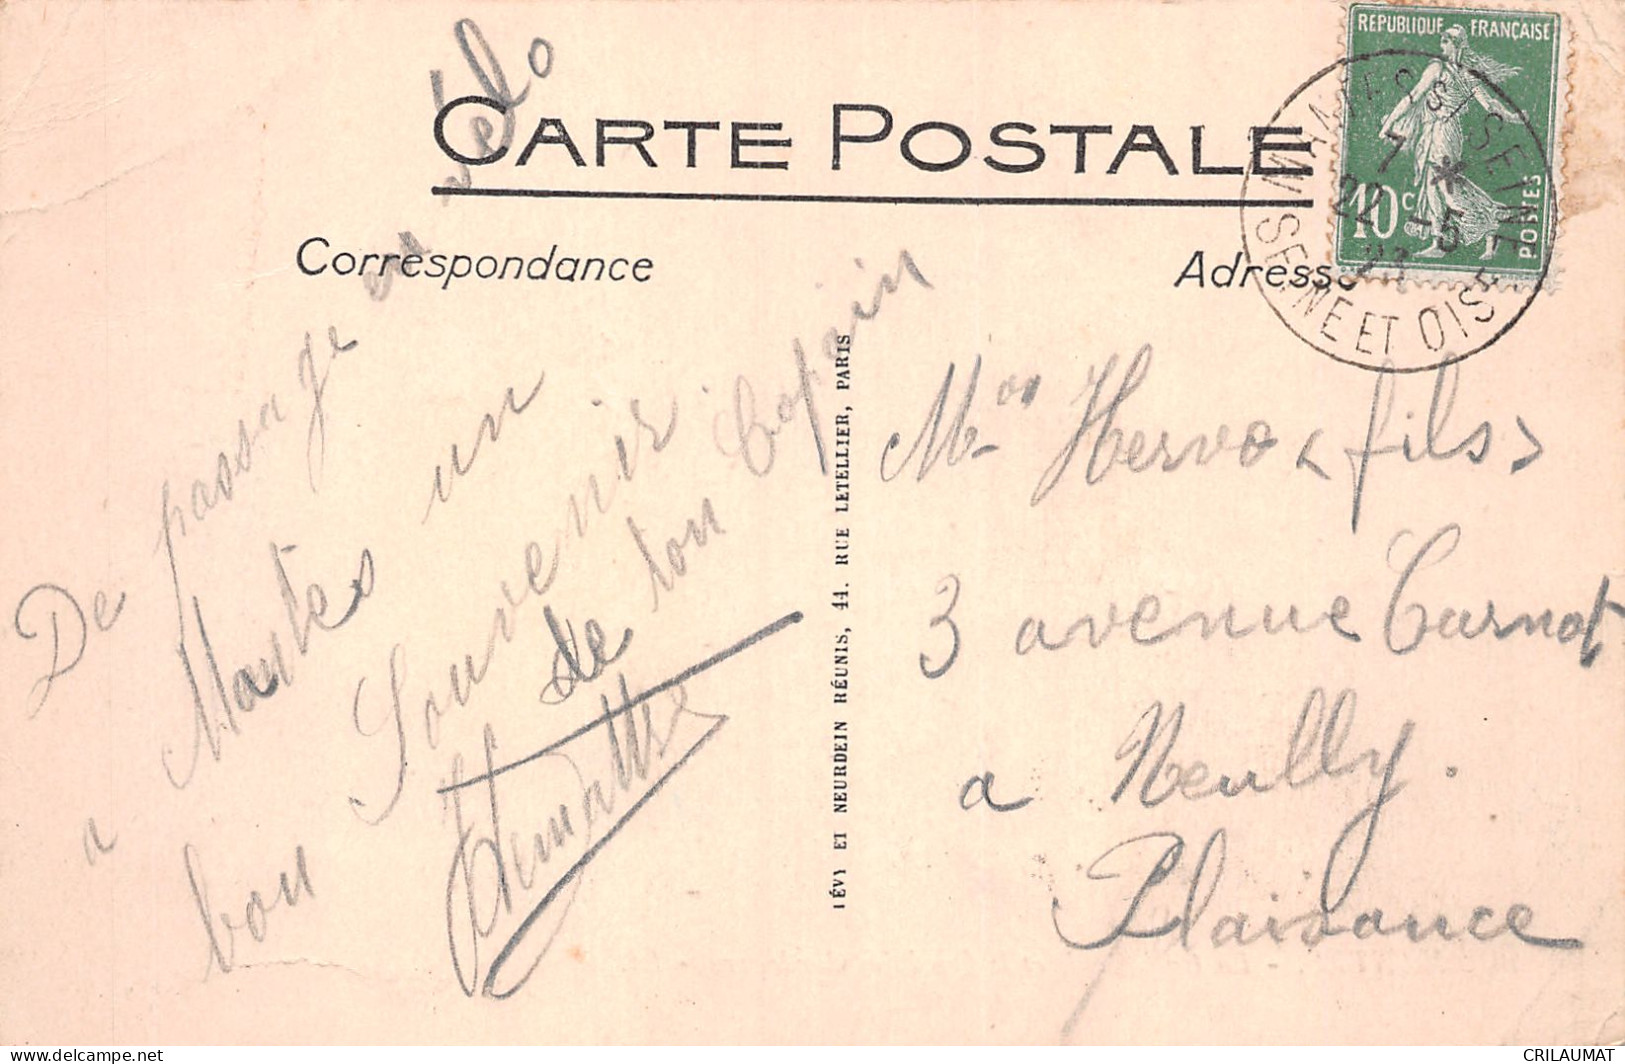 CARTE POSTALE
Correspondance
Adresse
REPUBLIQUE FRANÇAISE
10c
POSTES
MANTES S/ SEINE
7 *
22 -5
23
SEINE ET OISE
De passage en vélo
a Mantes un
bon Souvenir
de ton Copain
LÉVY ET NEURDEIN RÉUNIS, 44, RUE LETELLIER, PARIS
Mr Hervo <fils>
3 avenue Carnot
a Neully.
Plaisance
CRILAUMAT